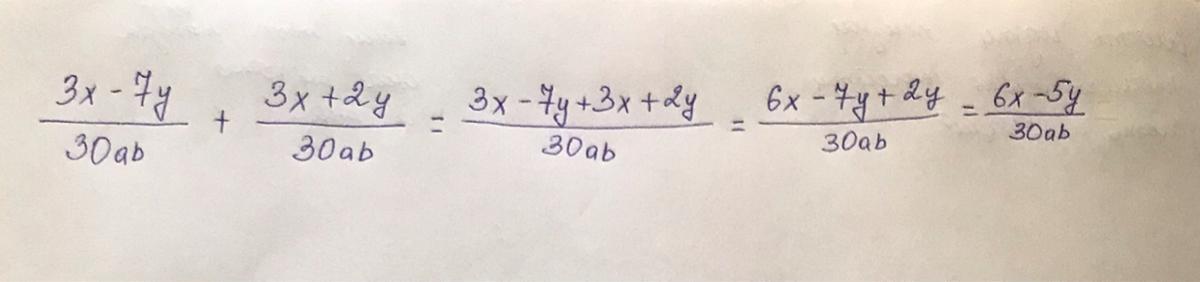 (3x - 7y)/(30ab) + (3x + 2y)/(30ab) = (3x - 7y + 3x + 2y)/(30ab) = (6x - 7y + 2y)/(30ab) = (6x - 5y)/(30ab)